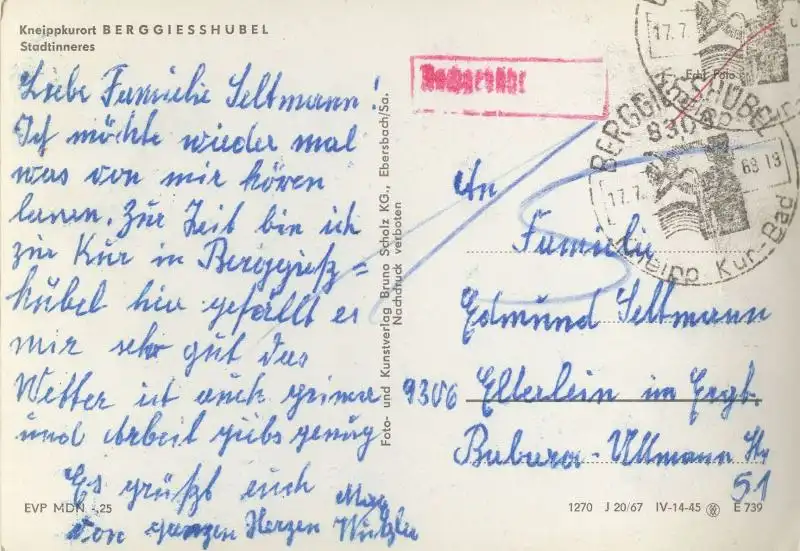 Kneippkurort BERGGIESSHÜBEL
Stadtinneres
Liebe Familie Seltmann!
Ich möchte wieder mal
was von mir hören
lassen. Zur Zeit bin ich
zur Kur in Berggieß=
hübel hier gefällt es
mir sehr gut das
Wetter ist auch prima
und Arbeit gibs genug
Es grüßt euch
von ganzen Herzen
EVP MDN -,25
Foto- und Kunstverlag Bruno Scholz KG., Ebersbach/Sa.
Nachdruck verboten
Nachgebühr
Echt Foto
17.7.
Kneipp
BERGGIESSHÜBEL
830
17.7. 68 18
Kneipp Kur-Bad
5
An
Familie
Edmund Seltmann
9306 Elterlein im Ergb.
Ullmann Str
51
1270 J 20/67 IV-14-45 E 739